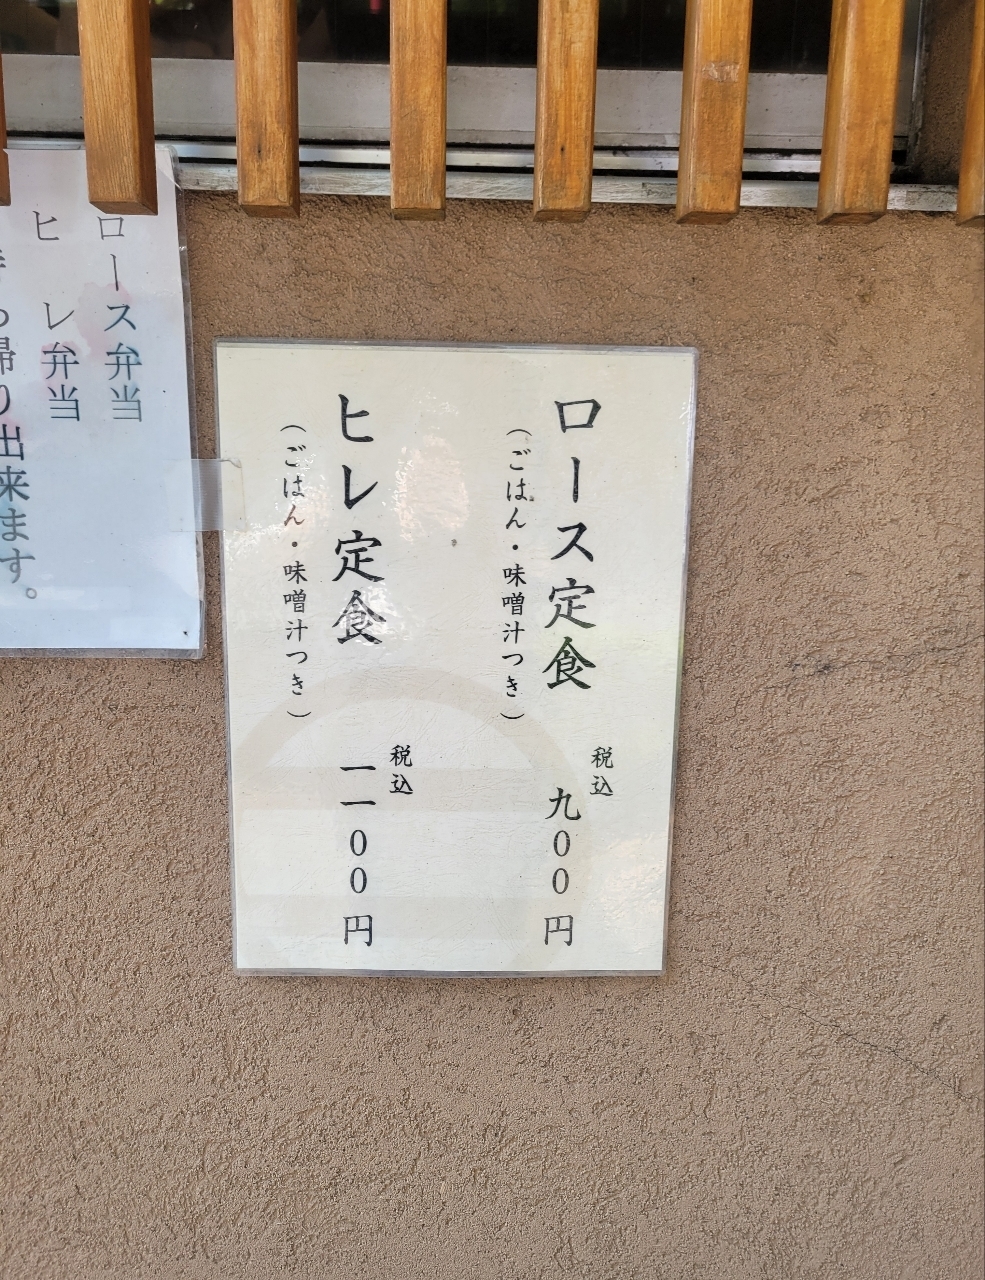 ロース定食
(ごはん・味噌汁つき)
税込
九〇〇円
ヒレ定食
(ごはん・味噌汁つき)
税込
一一〇〇円
ロース弁当
ヒレ弁当
ち帰り出来ます。